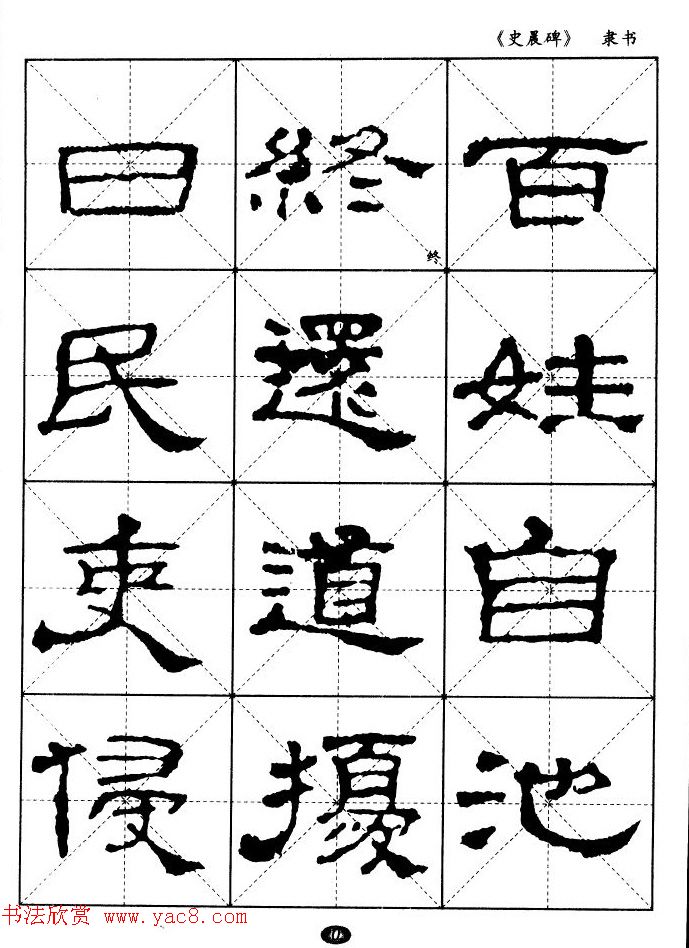 《史晨碑》 隶书
百姓自池
終還道擾
终
日民吏侵
书法欣赏 www.yac8.com
10